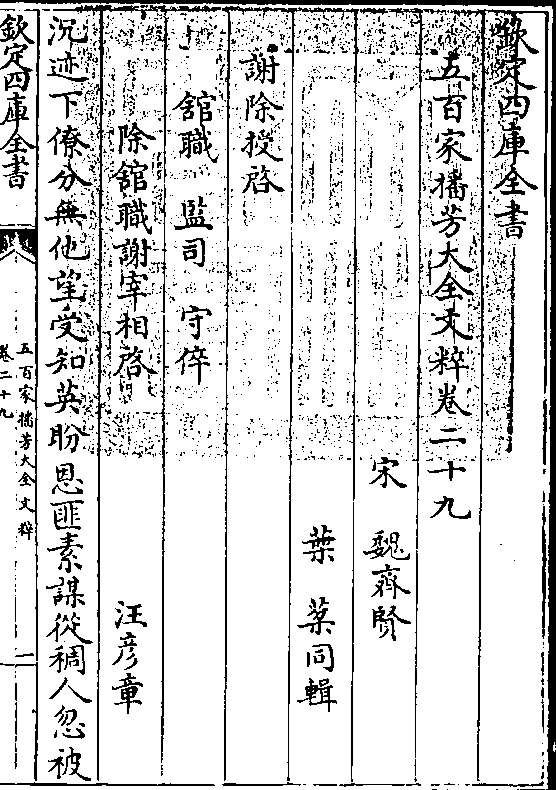 欽定四庫全書
五百家播芳大全文粹卷二十九
宋 魏齊賢
葉棻同輯
謝除授啓
舘職 監司 守倅
除舘職謝宰相啓 汪彦章
沉迹下僚分無他望受知英盼恩匪素謀從稠人忽被
欽定四庫全書
五百家播芳大全文粹
卷二十九